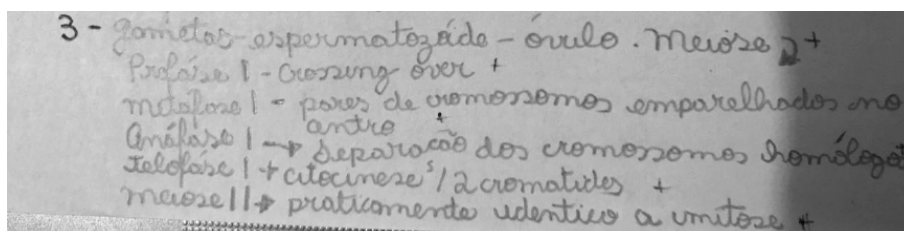 3 - gametas - espermatozóide - óvulo. Meiose 2 +
Prófase I - Crossing over +
metáfase I - pares de cromossomos emparelhados no
centro +
Anáfase I → Separação dos cromossomos homólogos
telofase I + citocinese s/ 2 cromatides +
meiose II → praticamente identico a mitose +